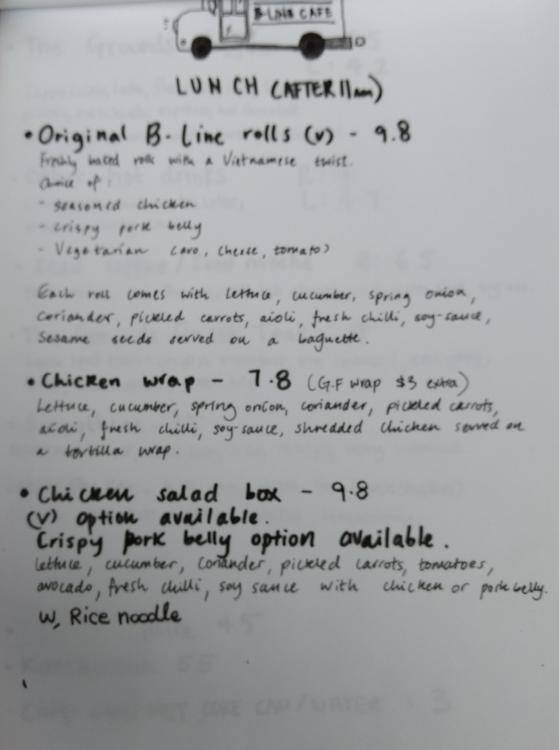 B-LINE CAFE
LUNCH (AFTER 11am)
• Original B-Line rolls (v) - 9.8
Freshly baked rolls with a Vietnamese twist.
Choice of,
- seasoned chicken
- crispy pork belly
- Vegetarian (avo, cheese, tomato)
Each roll comes with lettuce, cucumber, spring onion,
coriander, pickled carrots, aioli, fresh chilli, soy-sauce,
sesame seeds served on a baguette.
• Chicken wrap - 7.8 (G.F wrap $3 extra)
Lettuce, cucumber, spring onion, coriander, pickled carrots,
aioli, fresh chilli, soy-sauce, shredded chicken served on
a tortilla wrap.
• Chicken salad box - 9.8
(V) option available.
Crispy pork belly option available.
Lettuce, cucumber, coriander, pickled carrots, tomatoes,
avocado, fresh chilli, soy sauce with chicken or pork belly.
w, Rice noodle